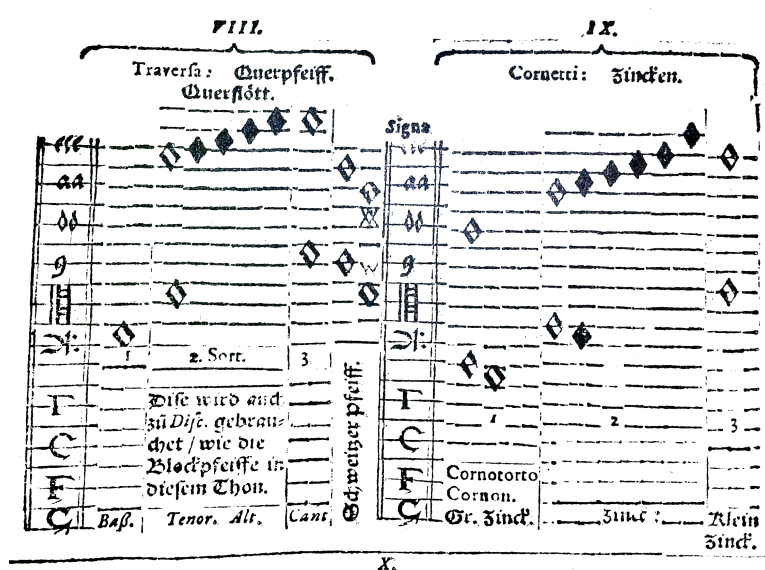 VIII.
Traversa: Querpfeiff.
Querflött.
eee
aa
dd
g
1
2. Sort.
3
Dise wird auch
zũ Disc. gebrau-
chet / wie die
Blockpfeiffe in
diesem Thon.
Γ
C
F
C
Baß.
Tenor. Alt.
Cant
Schweitzer Pfeiff.
IX.
Cornetti: Zincken.
Signa
eee
aa
dd
g
1
2
3
Γ
C
F
C
Cornotorto
Cornon.
Gr. Zinck.
Zinck:
Klein
Zinck.
X.